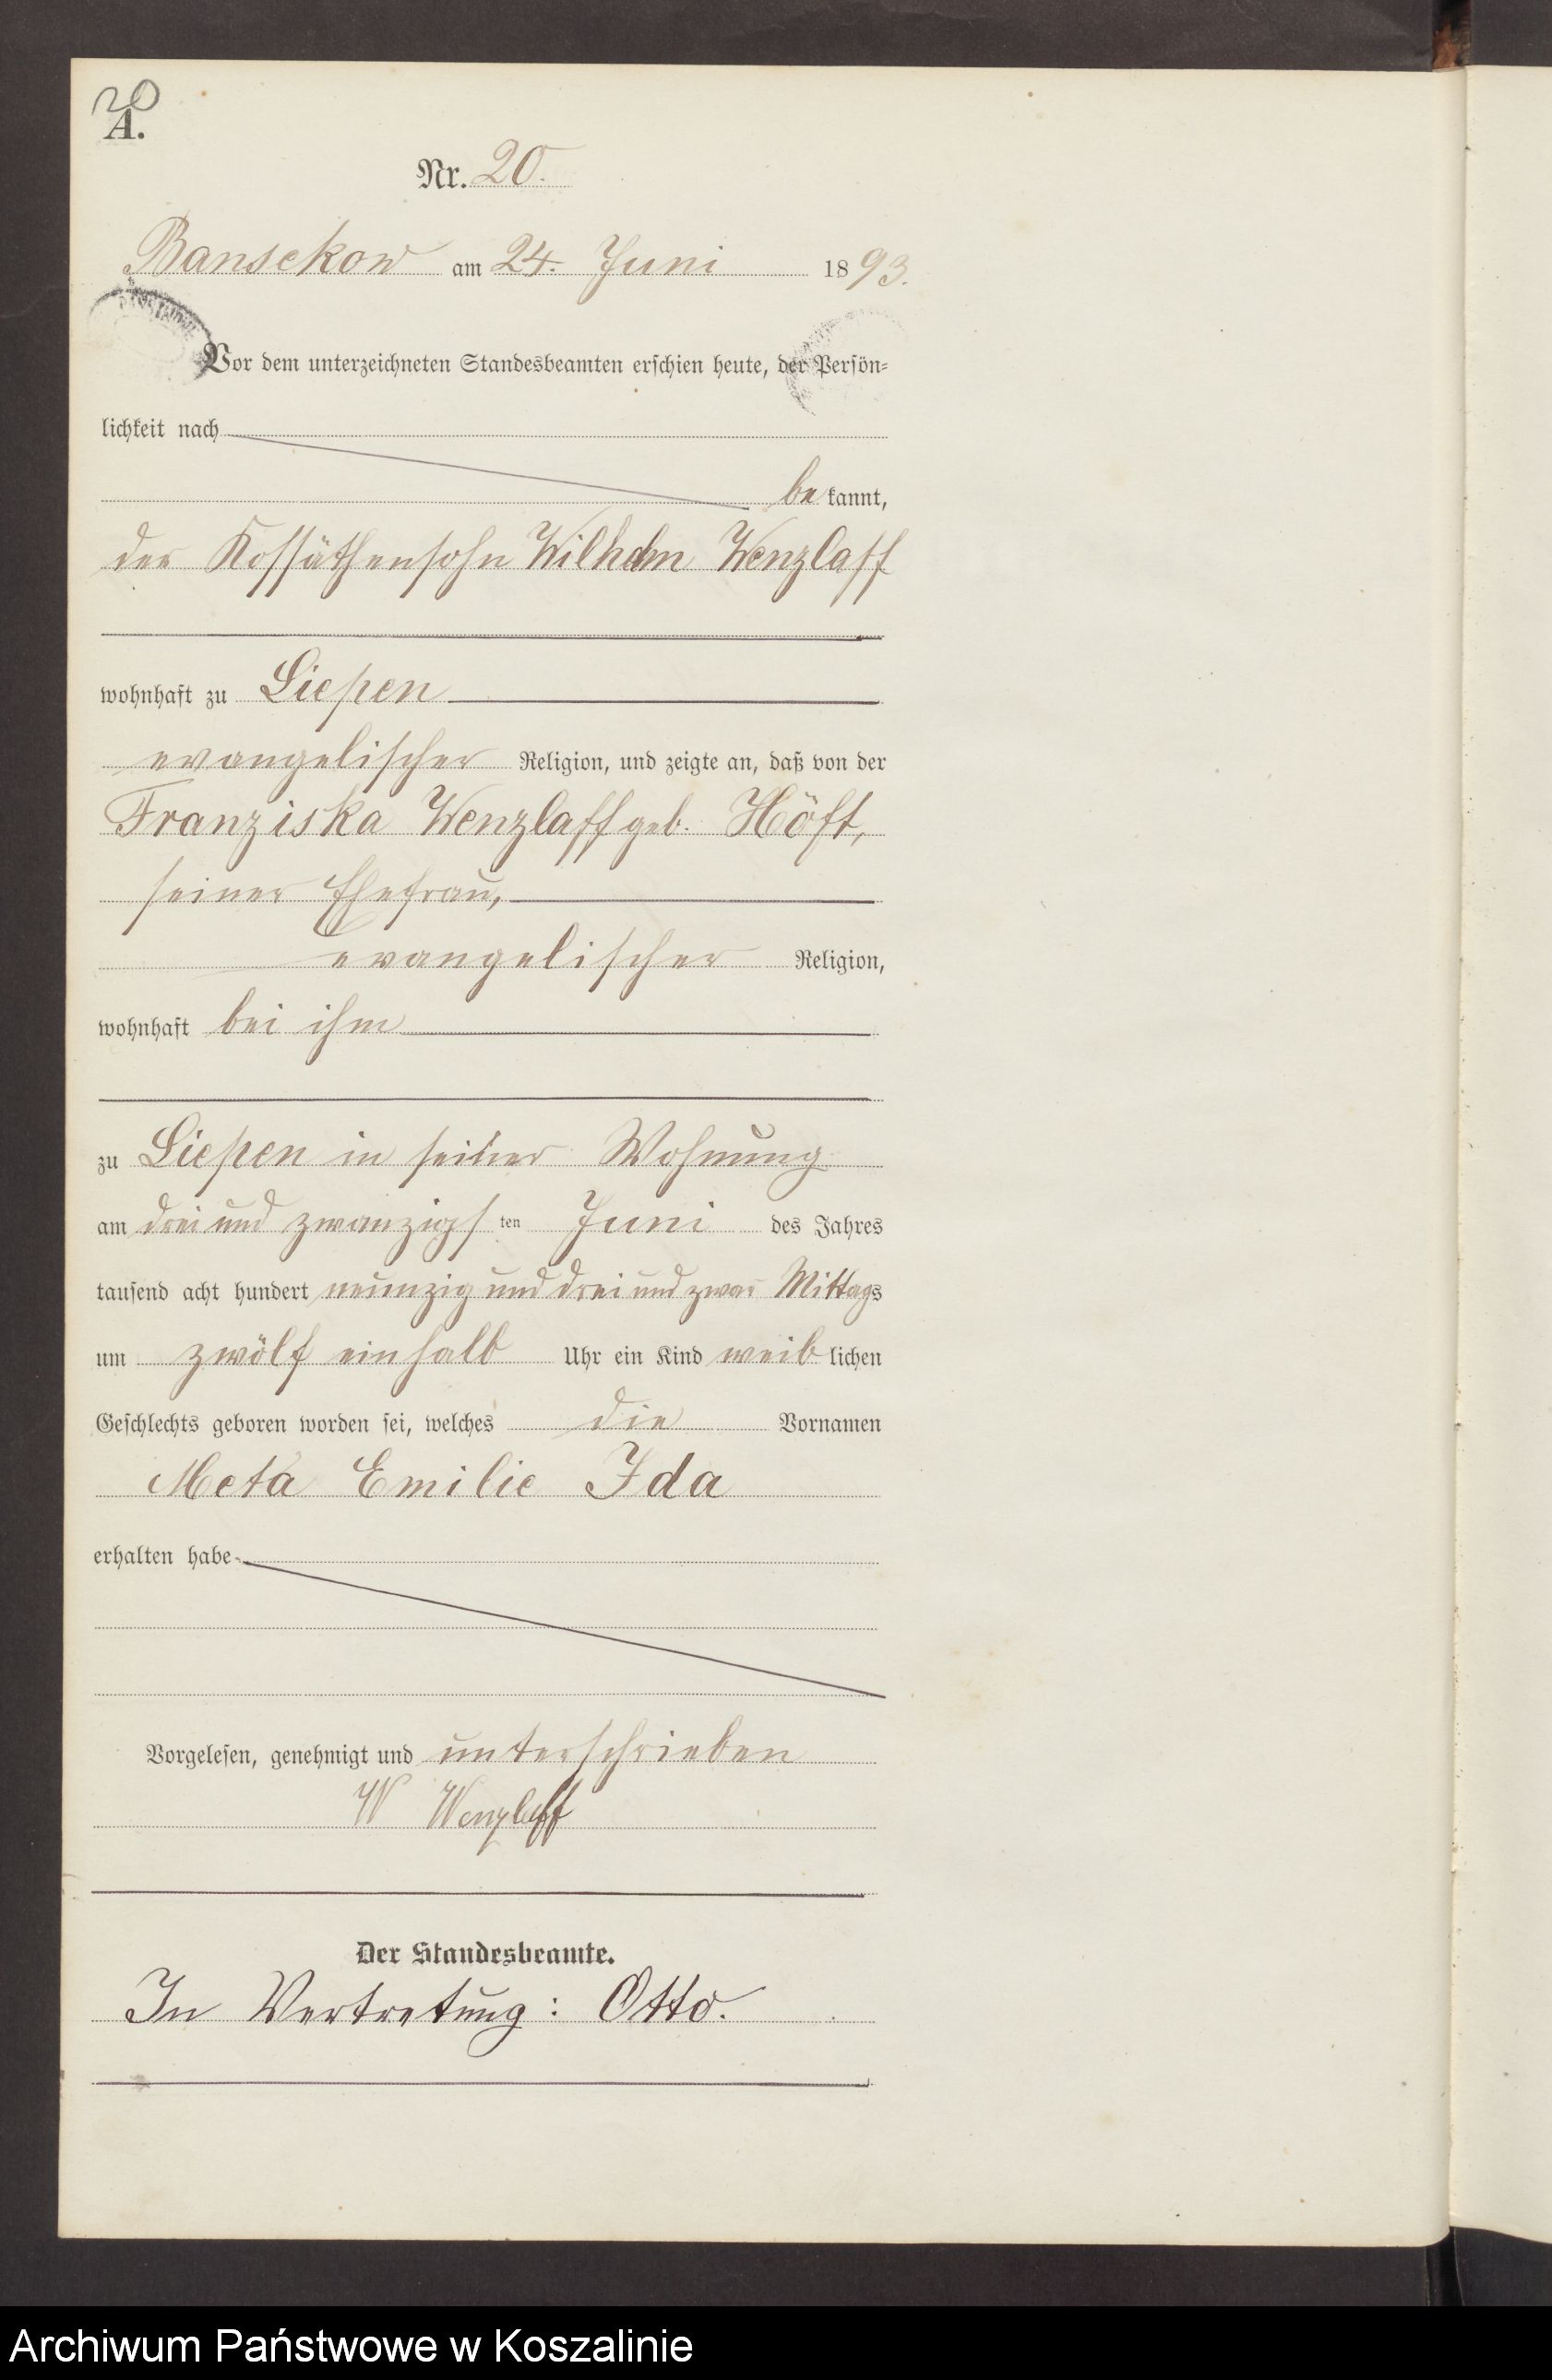 20
A.
Nr. 20.
Bansekow am 24. Juni 1893.
Vor dem unterzeichneten Standesbeamten erschien heute, der Persön-
lichkeit nach
bekannt,
der Kossäthensohn Wilhelm Wenzlaff
wohnhaft zu Liepen
evangelischer Religion, und zeigte an, daß von der
Franziska Wenzlaff geb. Höft,
seiner Ehefrau,
evangelischer Religion,
wohnhaft bei ihm
zu Liepen in seiner Wohnung
am drei und zwanzigsten Juni des Jahres
tausend acht hundert neunzig und drei und zwar Mittags
um zwölf einhalb Uhr ein Kind weiblichen
Geschlechts geboren worden sei, welches die Vornamen
Meta Emilie Ida
erhalten habe
Vorgelesen, genehmigt und unterschrieben
W Wenzlaff
Der Standesbeamte.
In Vertretung: Otto.
Archiwum Państwowe w Koszalinie